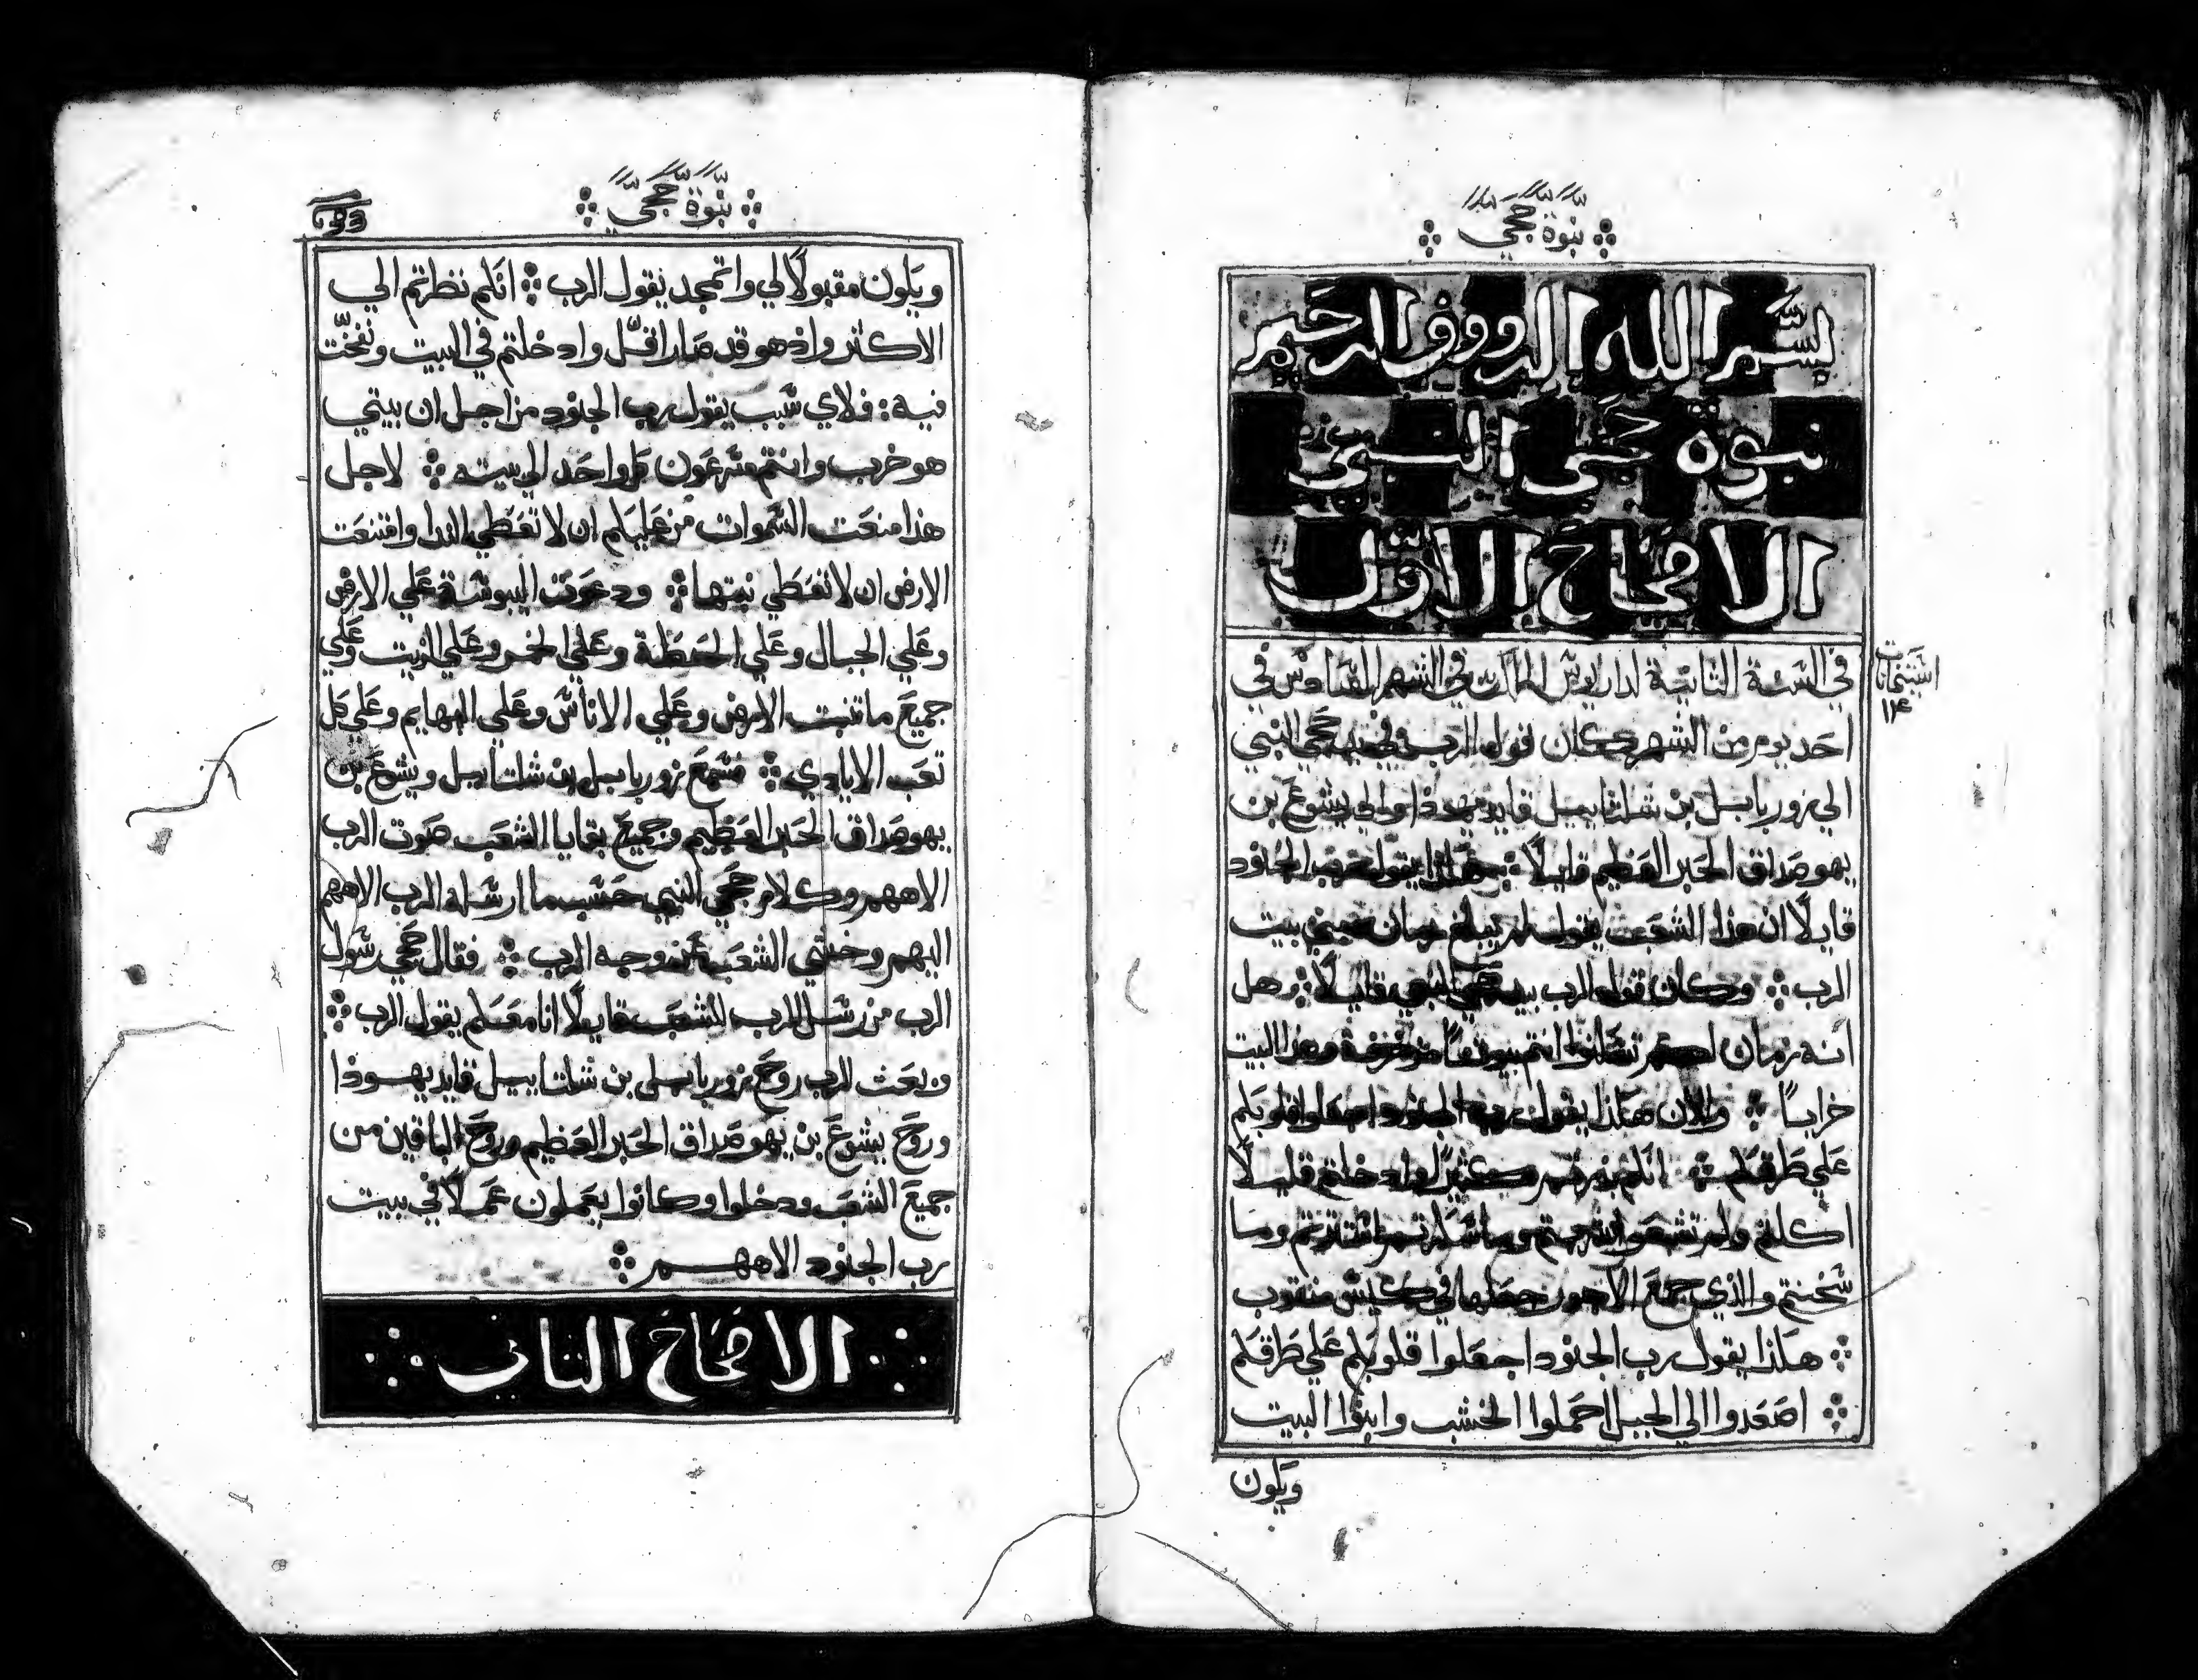 نبوة حجي
بسم الله الرووف الرحيم
نبوة حجى النبي
الاصحاح الاول
في السنة الثانية لداريوس الملك في الشهر السادس في
احد يوم من الشهر كان قول الرب في يد حجي النبي
الي زوربابل بن شلتاييل قايد يهوذا والي يشوع بن
يهوصداق الحبر العظيم قايلًا هكذا يقول رب الجنود
قايلًا ان هذا الشعب يقول لم يبلغ زمان بيت
الرب وكان قول الرب بيد حجي النبي قايلًا هل
انه زمان لكم انتم بيوتًا وهذا البيت
خرابًا والان هكذا يقول رب الجنود اجعلوا قلوبكم
علي طرقكم انكم زرعتم كثيرًا وادخلتم قليلًا
اكلتم ولم تشبعوا شربتم وما سكرتم استترتم وما
سخنتم والذي جمع الاجور جعلها في كيس منقوب
هكذا يقول رب الجنود اجعلوا قلوبكم علي طرقكم
اصعدوا الي الجبل احملوا الخشب وابنوا البيت
ويكون
نبوة حجي
ويكون مقبولًا لي واتمجد يقول الرب انكم نظرتم الي
الاكثر واذ هو قد صار اقل وادخلتم في البيت ونفخت
فيه فلاي سبب يقول رب الجنود من اجل ان بيتي
هو خرب وانتم كل واحد الي بيته لاجل
هذا منعت السموات من عليكم ان لا تعطي الندا وامتنعت
الارض ان لا تعطي نبتها ودعوت اليبوسة علي الارض
وعلي الجبال وعلي الحنطة وعلي الخمر وعلي الزيت وعلي
جميع ما تنبت الارض وعلي الاناس وعلي البهايم وعلي كل
تعب الايادي فسمع زوربابيل بن شلتاييل ويشوع بن
يهوصداق الحبر العظيم وجميع بقايا الشعب صوت الرب
الاههم وكلام حجي النبي حسب ما ارسله الرب الاههم
اليهم وخشي الشعب عند وجه الرب فقال حجي رسول
الرب من رسل الرب للشعب قايلًا انا معكم يقول الرب
وبعث الرب روح زوربابيل بن شلتاييل قايد يهوذا
وروح يشوع بن يهوصداق الحبر العظيم وروح الباقين من
جميع الشعب ودخلوا وكانوا يعملون عملًا في بيت
رب الجنود الاههم
الاصحاح الثاني